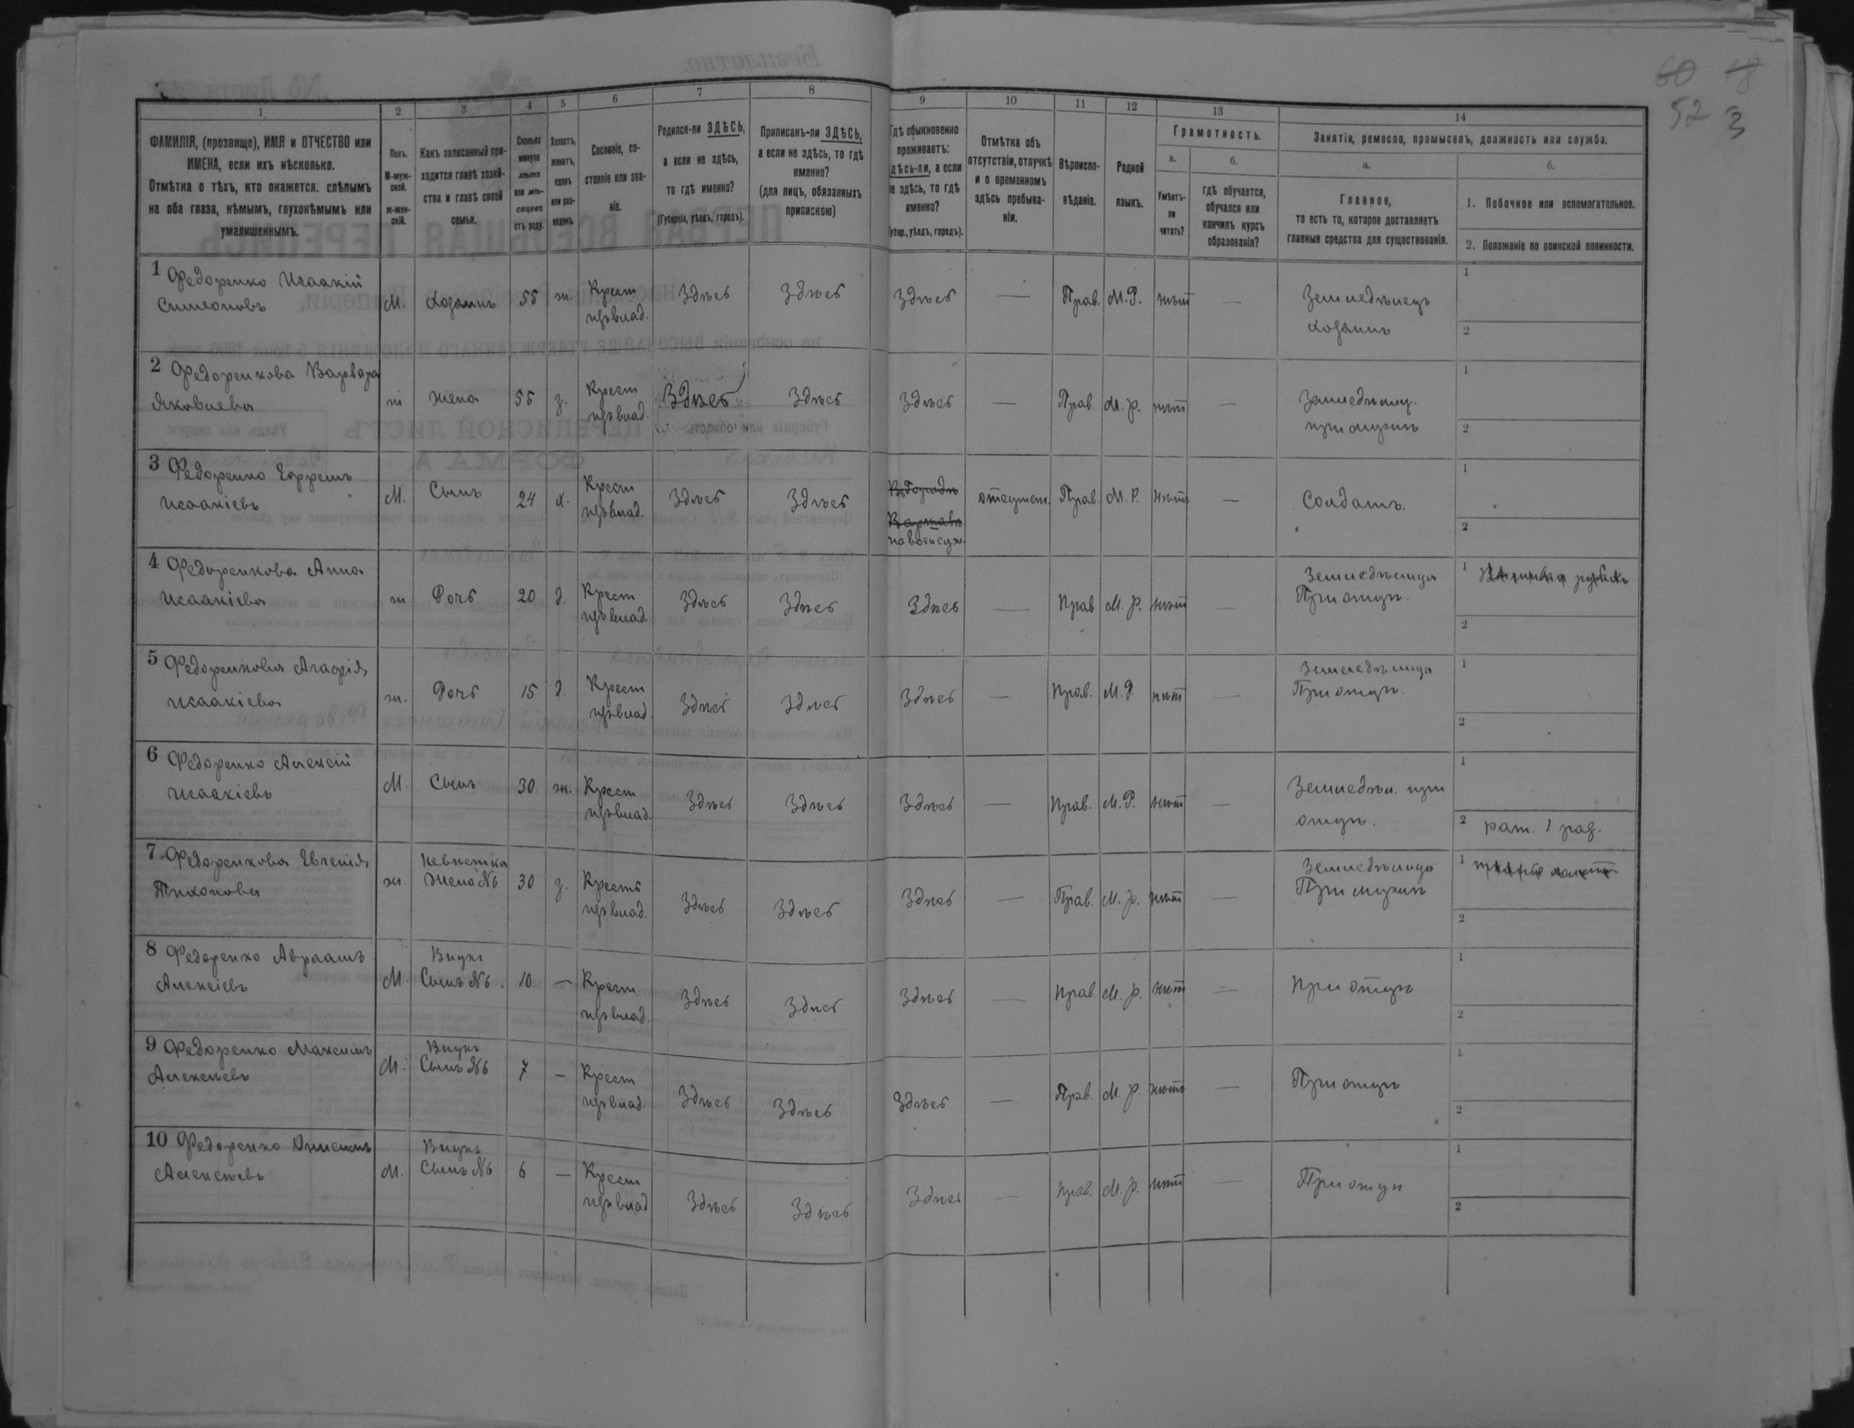 60 18
52 3
1
2
3
4
5
6
7
8
9
10
11
12
13
14
ФАМИЛІЯ, (прозвище), ИМЯ и ОТЧЕСТВО или
ИМЕНА, если ихъ нѣсколько.
Отмѣтка о тѣхъ, кто окажется: слѣпымъ
на оба глаза, нѣмымъ, глухонѣмымъ или
умалишеннымъ.
Полъ.
М-муж-
ской.
ж-жен-
скій.
Какъ записанный при-
ходится главѣ хозяй-
ства и главѣ своей
семьи.
Сколько
минуло
лѣтъ
или мѣ-
сяцевъ
отъ роду.
Холостъ,
женатъ,
вдовъ
или раз-
веденъ.
Сословіе, со-
стояніе или зва-
ніе.
Родился-ли ЗДѢСЬ,
а если не здѣсь,
то гдѣ именно?
(Губернія, уѣздъ, городъ).
Приписанъ-ли ЗДѢСЬ,
а если не здѣсь, то гдѣ
именно?
(для лицъ, обязанныхъ
припискою)
Гдѣ обыкновенно
проживаетъ:
здѣсь-ли, а если
не здѣсь, то гдѣ
именно?
(Губер., уѣздъ, городъ).
Отмѣтка объ
отсутствіи, отлучкѣ
и о временномъ
здѣсь пребыва-
ніи.
Вѣроиспо-
вѣданіе.
Родной
языкъ.
Грамотность.
а.
Умѣетъ-
ли
читать?
б.
гдѣ обучается,
обучался или
кончилъ курсъ
образованія?
Занятіе, ремесло, промыселъ, должность или служба.
а.
Главное,
то есть то, которое доставляетъ
главныя средства для существованія.
б.
1. Побочное или вспомогательное.
2. Положеніе по воинской повинности.
1 Федоренко Исаакій
Симеоновъ
М. Хозяинъ 55 ж. Крест. изъ влад. Здѣсь Здѣсь Здѣсь — Прав. М.Р. нѣтъ — Земледѣлецъ
хозяинъ
1
2
2 Федоренкова Варвара
Яковлева
ж Жена 55 з. Крест изъ влад. Здѣсь Здѣсь Здѣсь — Прав. М.р. нѣтъ — Земледѣлиц.
при мужѣ
1
2
3 Федоренко Ефремъ
Исаакіевъ
М. Сынъ 24 х. Крест изъ влад. Здѣсь Здѣсь
на воен служ.
отсутст. Прав М.Р. нѣтъ — Солдатъ.
1
2
4 Федоренкова Анна
Исаакіева
ж Дочь 20 д. Крест изъ влад. Здѣсь Здѣсь Здѣсь — Прав М.р. нѣтъ — Земледѣлица
При отцѣ.
1
2
5 Федоренкова Агафія
Исаакіева
ж. Дочь 15 д. Крест изъ влад. Здѣсь Здѣсь Здѣсь — Прав. М.Р. нѣтъ — Земледѣлица
При отцѣ.
1
2
6 Федоренко Алексій
Исаакіевъ
М. Сынъ 30 ж. Крест изъ влад. Здѣсь Здѣсь Здѣсь — Прав. М.Р. нѣтъ — Земледѣл. при
отцѣ.
1
2 рат. 1 раз.
7 Федоренкова Евгенія
Тихонова
ж. Невѣстка
Жена №6 30 з. Крестъ изъ влад. Здѣсь Здѣсь Здѣсь — Прав. М.р. нѣтъ — Земледѣлица
При мужѣ
1
2
8 Федоренко Авраамъ
Алексіевъ
М. Внукъ
Сынъ №6. 10 — Крест изъ влад. Здѣсь Здѣсь Здѣсь — Прав. М.р. нѣтъ — При отцѣ
1
2
9 Федоренко Максимъ
Алексѣевъ
М. Внукъ
Сынъ №6 7 — Крест изъ влад. Здѣсь Здѣсь Здѣсь — Прав. М.р. нѣтъ — При отцѣ
1
2
10 Федоренко Онисимъ
Алексѣевъ
М. Внукъ
Сынъ №6 6 — Крест изъ влад Здѣсь Здѣсь Здѣсь — Прав. М.р. нѣтъ — При отцѣ
1
2